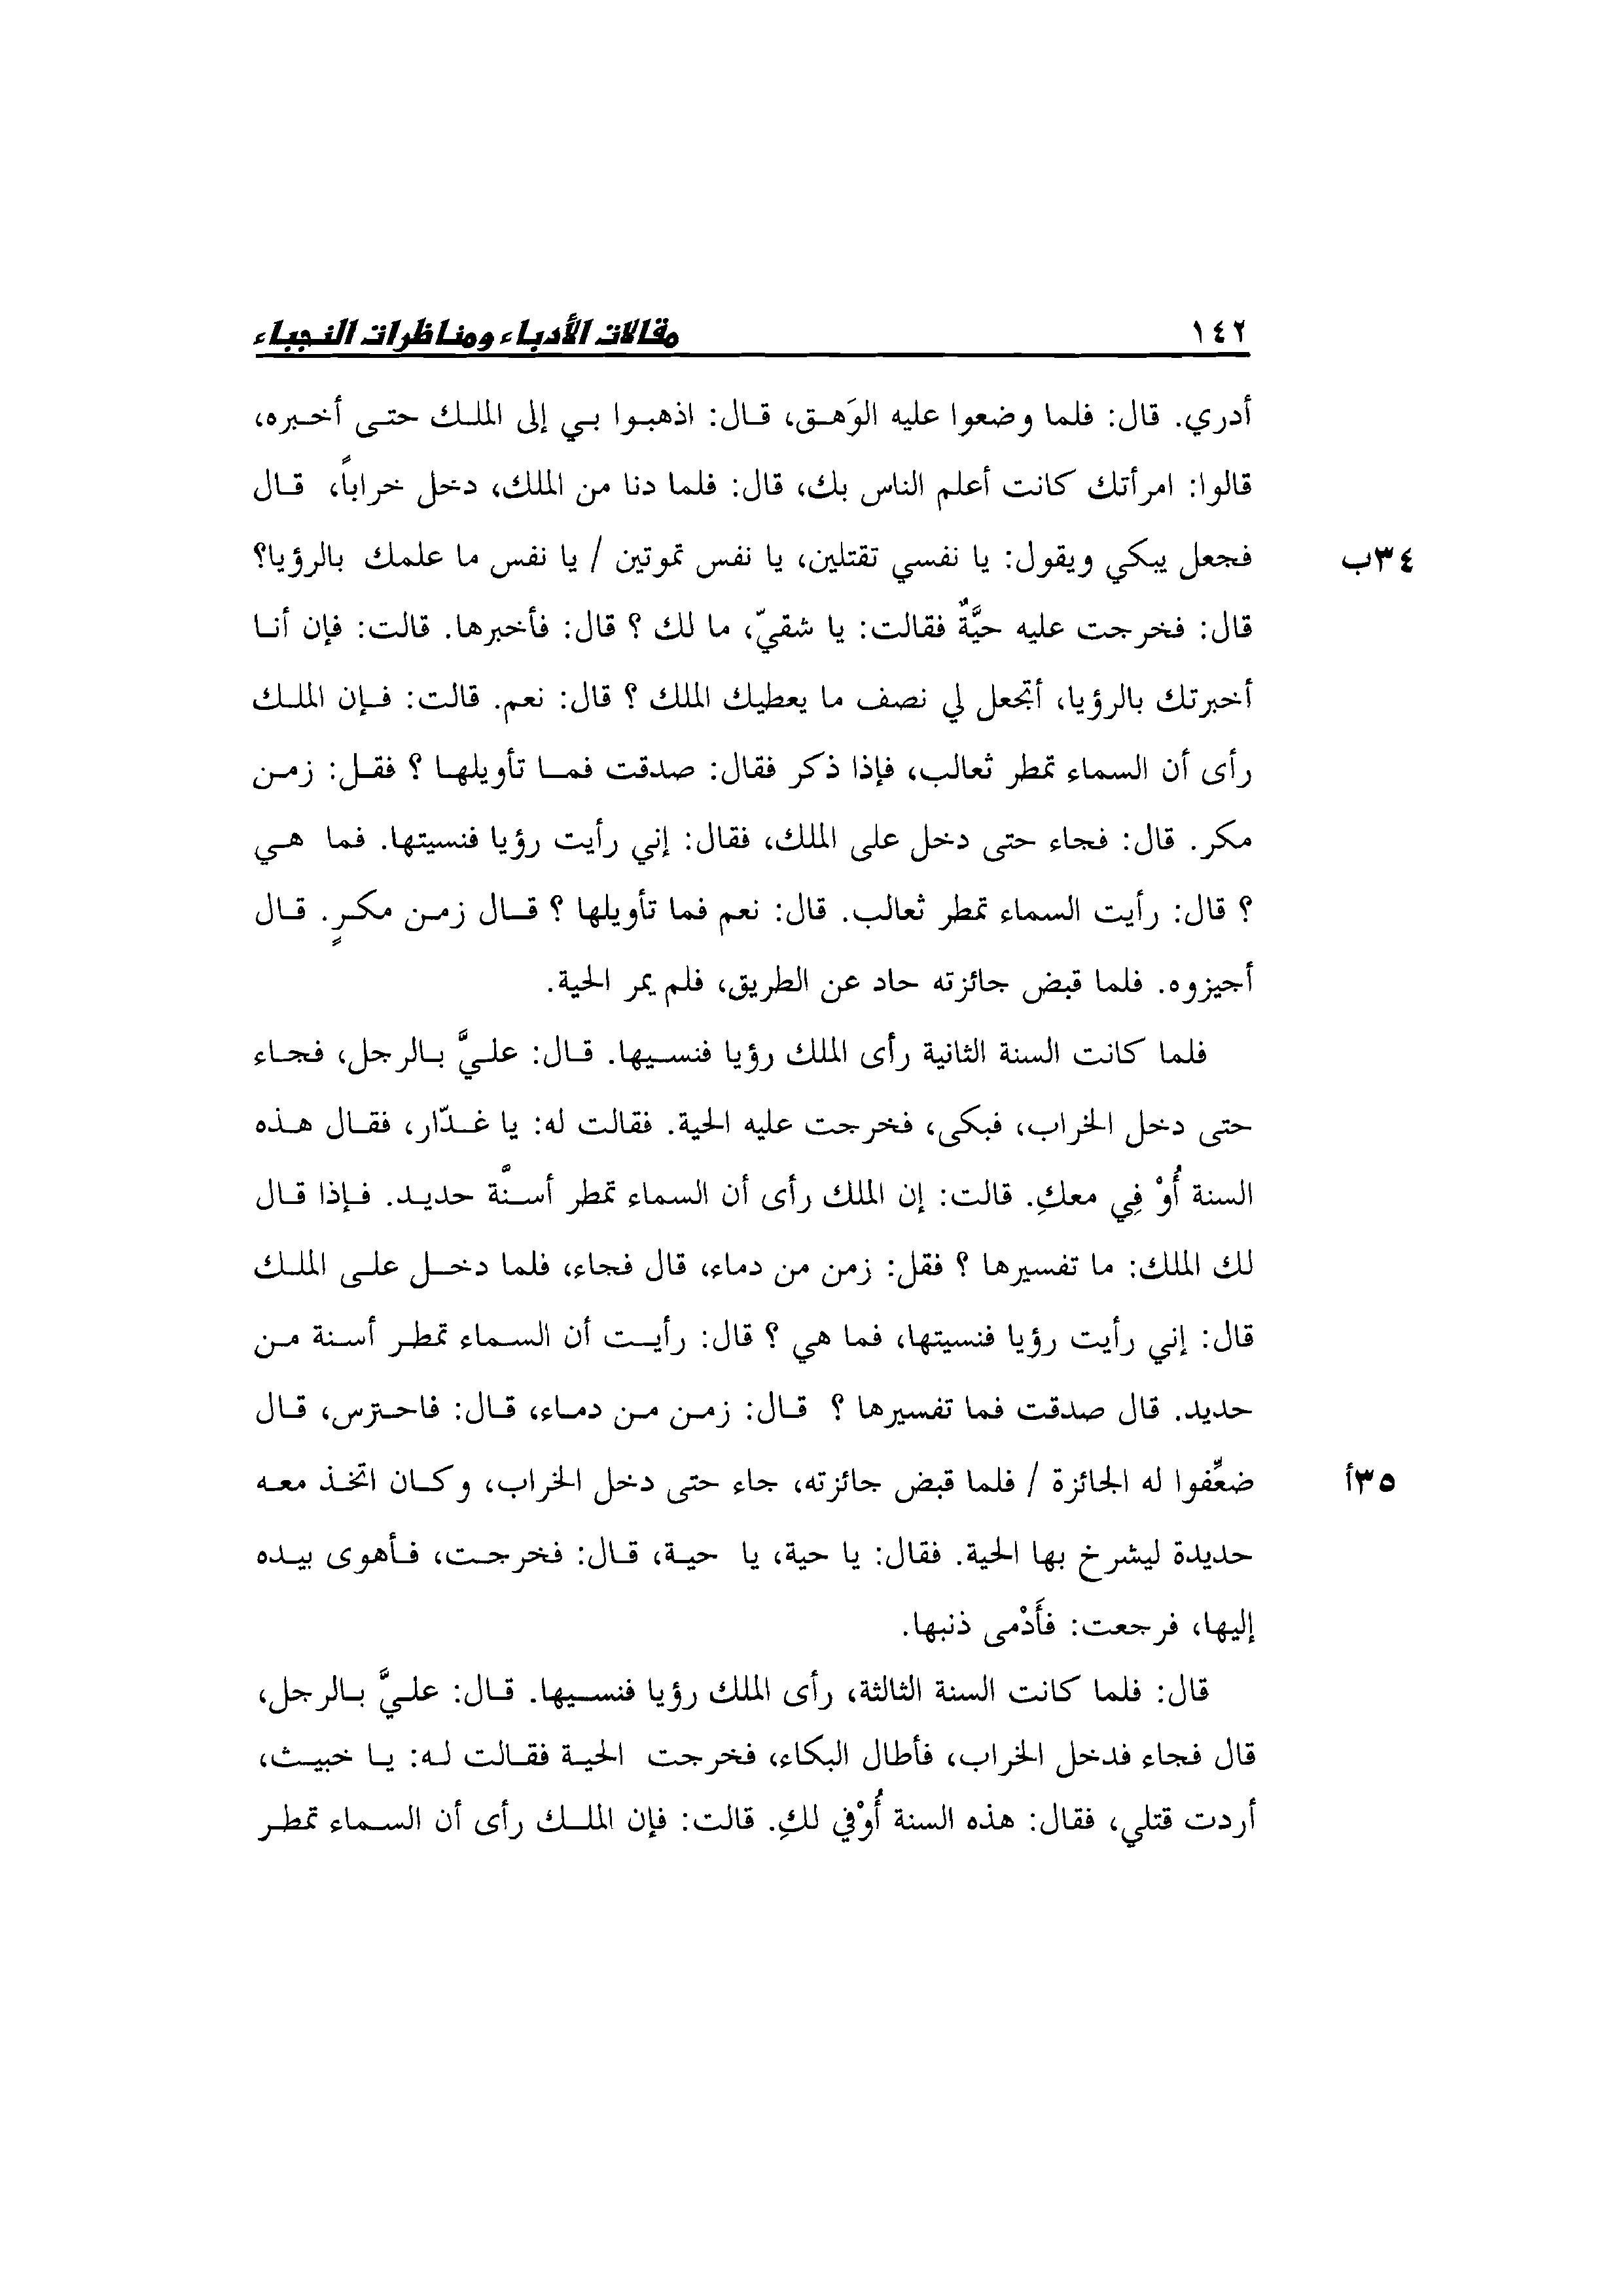 ١٤٢ مقالات الأدباء ومناظرات النجباء
أدري. قال: فلما وضعوا عليه الوَهق، قال: اذهبوا بي إلى الملك حتى أخبره،
قالوا: امرأتك كانت أعلم الناس بك، قال: فلما دنا من الملك، دخل خراباً، قال
فجعل يبكي ويقول: يا نفسي تقتلين، يا نفس تموتين / يا نفس ما علمك بالرؤيا؟ ٣٤ب
قال: فخرجت عليه حيَّةٌ فقالت: يا شقيّ، ما لك ؟ قال: فأخبرها. قالت: فإن أنا
أخبرتك بالرؤيا، أتجعل لي نصف ما يعطيك الملك ؟ قال: نعم. قالت: فإن الملك
رأى أن السماء تمطر ثعالب، فإذا ذكر فقال: صدقت فما تأويلها ؟ فقل: زمن
مكر. قال: فجاء حتى دخل على الملك، فقال: إني رأيت رؤيا فنسيتها. فما هي
؟ قال: رأيت السماء تمطر ثعالب. قال: نعم فما تأويلها ؟ قال زمن مكرٍ. قال
أجيزوه. فلما قبض جائزته حاد عن الطريق، فلم يمر الحية.
فلما كانت السنة الثانية رأى الملك رؤيا فنسيها. قال: عليَّ بالرجل، فجاء
حتى دخل الخراب، فبكى، فخرجت عليه الحية. فقالت له: يا غدّار، فقال هذه
السنة أُوْ فِي معكِ. قالت: إن الملك رأى أن السماء تمطر أسنَّة حديد. فإذا قال
لك الملك: ما تفسيرها ؟ فقل: زمن من دماء، قال فجاء، فلما دخل على الملك
قال: إني رأيت رؤيا فنسيتها، فما هي ؟ قال: رأيت أن السماء تمطر أسنة من
حديد. قال صدقت فما تفسيرها ؟ قال: زمن من دماء، قال: فاحترس، قال
ضعِّفوا له الجائزة / فلما قبض جائزته، جاء حتى دخل الخراب، وكان اتخذ معه ٣٥أ
حديدة ليشرخ بها الحية. فقال: يا حية، يا حية، قال: فخرجت، فأهوى بيده
إليها، فرجعت: فأَدْمى ذنبها.
قال: فلما كانت السنة الثالثة، رأى الملك رؤيا فنسيها. قال: عليَّ بالرجل،
قال فجاء فدخل الخراب، فأطال البكاء، فخرجت الحية فقالت له: يا خبيث،
أردت قتلي، فقال: هذه السنة أُوْفي لكِ. قالت: فإن الملك رأى أن السماء تمطر